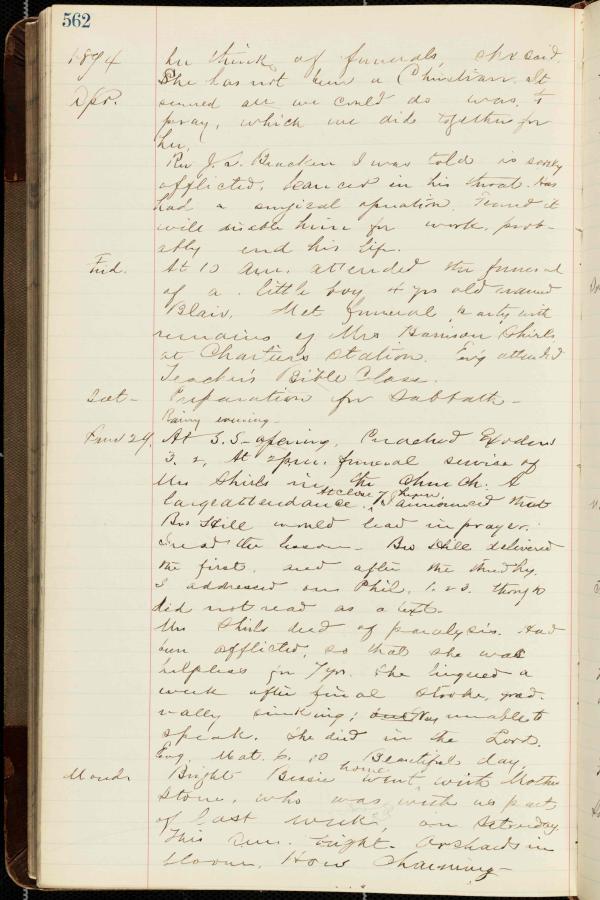 562
1894 her think of funerals, she said.
She has not been a Christian. It
Apr. seemed all we could do was to
pray, which we did together for
her.
Rev J. L. Bracken I was told is sorely
afflicted, cancer in his throat. Has
had a surgical operation. Feared it
will disable him for work, prob-
ably end his life.
Frid. At 10 a.m. attended the funeral
of a little boy 4 yrs old named
Blair. Met funeral party with
remains of Mrs Harrison Shirls
at Chartiers Station. Ev'g attended
Teacher's Bible Class.
Sat- Preparation for Sabbath-
Rainy evening-
29. At S.S- opening. Preached Exodus
3. 2, At 2 p.m. funeral service of
Mrs Shirls in the church. A
large attendance. At close of hymn, I announced that
Bro Hill would lead in prayer.
I read the lesson- Bro Hill delivered
the first, and after the
I addressed on Phil. 1. 23. though
did not read as a text.
Mrs Shirls died of paralysis. Had
been afflicted, so that she was
helpless for 7 yr. She lingered a
week after final stroke, grad-
ually sinking; was unable to
speak. She died in the Lord.
Evg Mat. 6. 10 Beautiful day.
Monday Bright Bessie went home with Mother
Stone, who was with us part
of last week, on Saturday.
This a.m. bright. Orchards in
bloom. How charming-